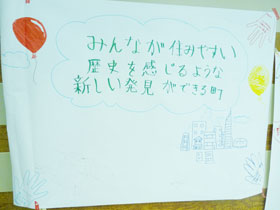 みんなが住みやすい
歴史を感じるような
新しい発見ができる町